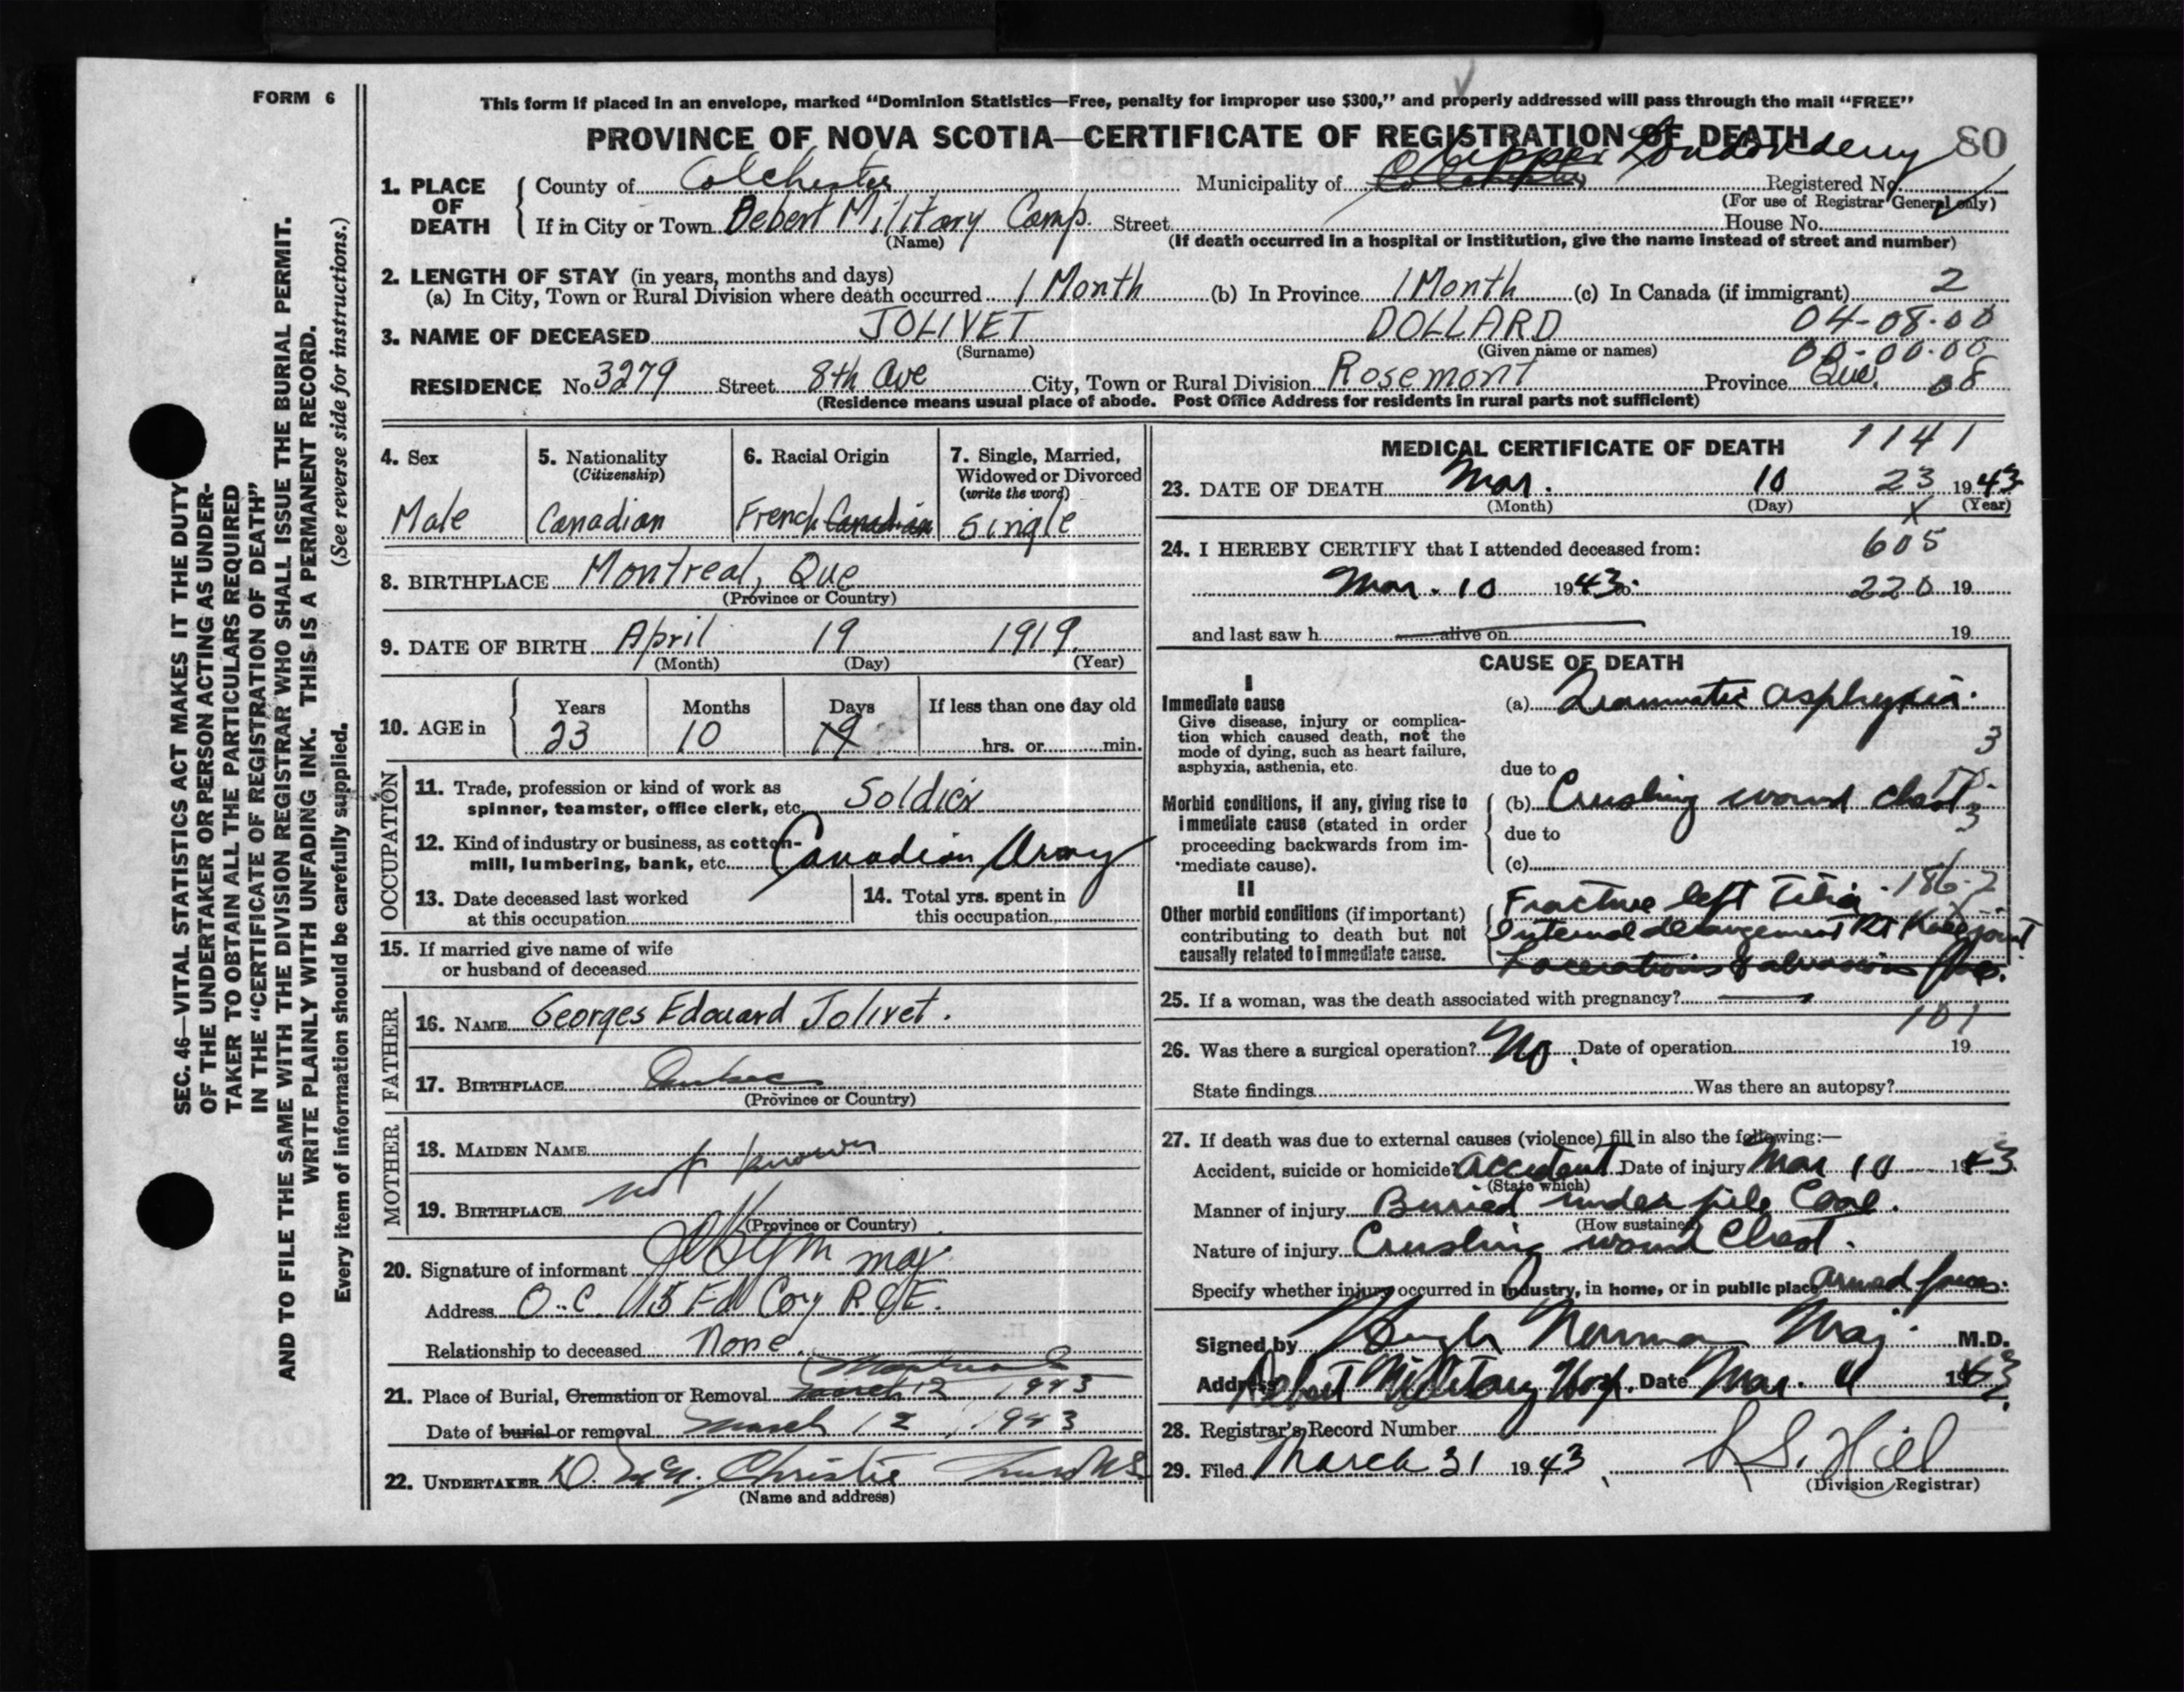 FORM 6
This form if placed in an envelope, marked “Dominion Statistics—Free, penalty for improper use $300,” and properly addressed will pass through the mail “FREE”
PROVINCE OF NOVA SCOTIA—CERTIFICATE OF REGISTRATION OF DEATH
80
1. PLACE OF DEATH
County of Colchester Municipality of Upper Londonderry Registered No.
(For use of Registrar General only)
If in City or Town Debert Military Camp. Street House No.
(Name) (If death occurred in a hospital or institution, give the name instead of street and number)
2. LENGTH OF STAY (in years, months and days)
(a) In City, Town or Rural Division where death occurred 1 Month (b) In Province 1 Month (c) In Canada (if immigrant) 2
3. NAME OF DECEASED JOLIVET DOLLARD 04-08-00
(Surname) (Given name or names) 00-00-00
RESIDENCE No 3279 Street 8th Ave City, Town or Rural Division Rosemont Province Que. 08
(Residence means usual place of abode. Post Office Address for residents in rural parts not sufficient)
SEC. 46—VITAL STATISTICS ACT MAKES IT THE DUTY
OF THE UNDERTAKER OR PERSON ACTING AS UNDER-
TAKER TO OBTAIN ALL THE PARTICULARS REQUIRED
IN THE “CERTIFICATE OF REGISTRATION OF DEATH”
AND TO FILE THE SAME WITH THE DIVISION REGISTRAR WHO SHALL ISSUE THE BURIAL PERMIT.
WRITE PLAINLY WITH UNFADING INK. THIS IS A PERMANENT RECORD.
Every item of information should be carefully supplied. (See reverse side for instructions.)
4. Sex
Male
5. Nationality
(Citizenship)
Canadian
6. Racial Origin
French Canadian
7. Single, Married,
Widowed or Divorced
(write the word)
Single
8. BIRTHPLACE Montreal, Que
(Province or Country)
9. DATE OF BIRTH April 19 1919
(Month) (Day) (Year)
10. AGE in
Years Months Days If less than one day old
23 10 19 hrs. or min.
OCCUPATION
11. Trade, profession or kind of work as
spinner, teamster, office clerk, etc. Soldier
12. Kind of industry or business, as cotton-
mill, lumbering, bank, etc. Canadian Army
13. Date deceased last worked
at this occupation
14. Total yrs. spent in
this occupation
15. If married give name of wife
or husband of deceased
FATHER
16. NAME Georges Edouard Jolivet.
17. BIRTHPLACE Quebec
(Province or Country)
MOTHER
18. MAIDEN NAME
not known
19. BIRTHPLACE
(Province or Country)
20. Signature of informant maj
Address O.C. 15 Fd Coy RCE.
Relationship to deceased None.
Montreal
21. Place of Burial, Cremation or Removal March 12 1943
Date of burial or removal March 12, 1943
22. UNDERTAKER D. Christie Truro NS
(Name and address)
MEDICAL CERTIFICATE OF DEATH 1141
23. DATE OF DEATH Mar. 10 23 1943
(Month) (Day) x (Year)
24. I HEREBY CERTIFY that I attended deceased from: 605
Mar. 10 1943 to 220 19
and last saw h alive on 19
CAUSE OF DEATH
I
Immediate cause
Give disease, injury or complica-
tion which caused death, not the
mode of dying, such as heart failure,
asphyxia, asthenia, etc.
(a) Traumatic asphyxia.
3
due to
Morbid conditions, if any, giving rise to
immediate cause (stated in order
proceeding backwards from im-
mediate cause).
(b) Crushing wound chest
3
due to
(c)
II
Other morbid conditions (if important)
contributing to death but not
causally related to immediate cause.
Fracture left Tibia 186-2
Internal derangement Rt Knee joint
Lacerations & abrasions
25. If a woman, was the death associated with pregnancy?
101
26. Was there a surgical operation? No. Date of operation 19
State findings Was there an autopsy?
27. If death was due to external causes (violence) fill in also the following:—
Accident, suicide or homicide? Accident Date of injury Mar 10 1943
(State which)
Manner of injury Buried under pile Coal.
(How sustained)
Nature of injury Crushing wound Chest.
Specify whether injury occurred in industry, in home, or in public place Armed forces.
Signed by Hugh Norman Maj. M.D.
Address Debert Military Hosp. Date Mar. 11 1943
28. Registrar's Record Number
29. Filed March 31 1943 Hill
(Division Registrar)